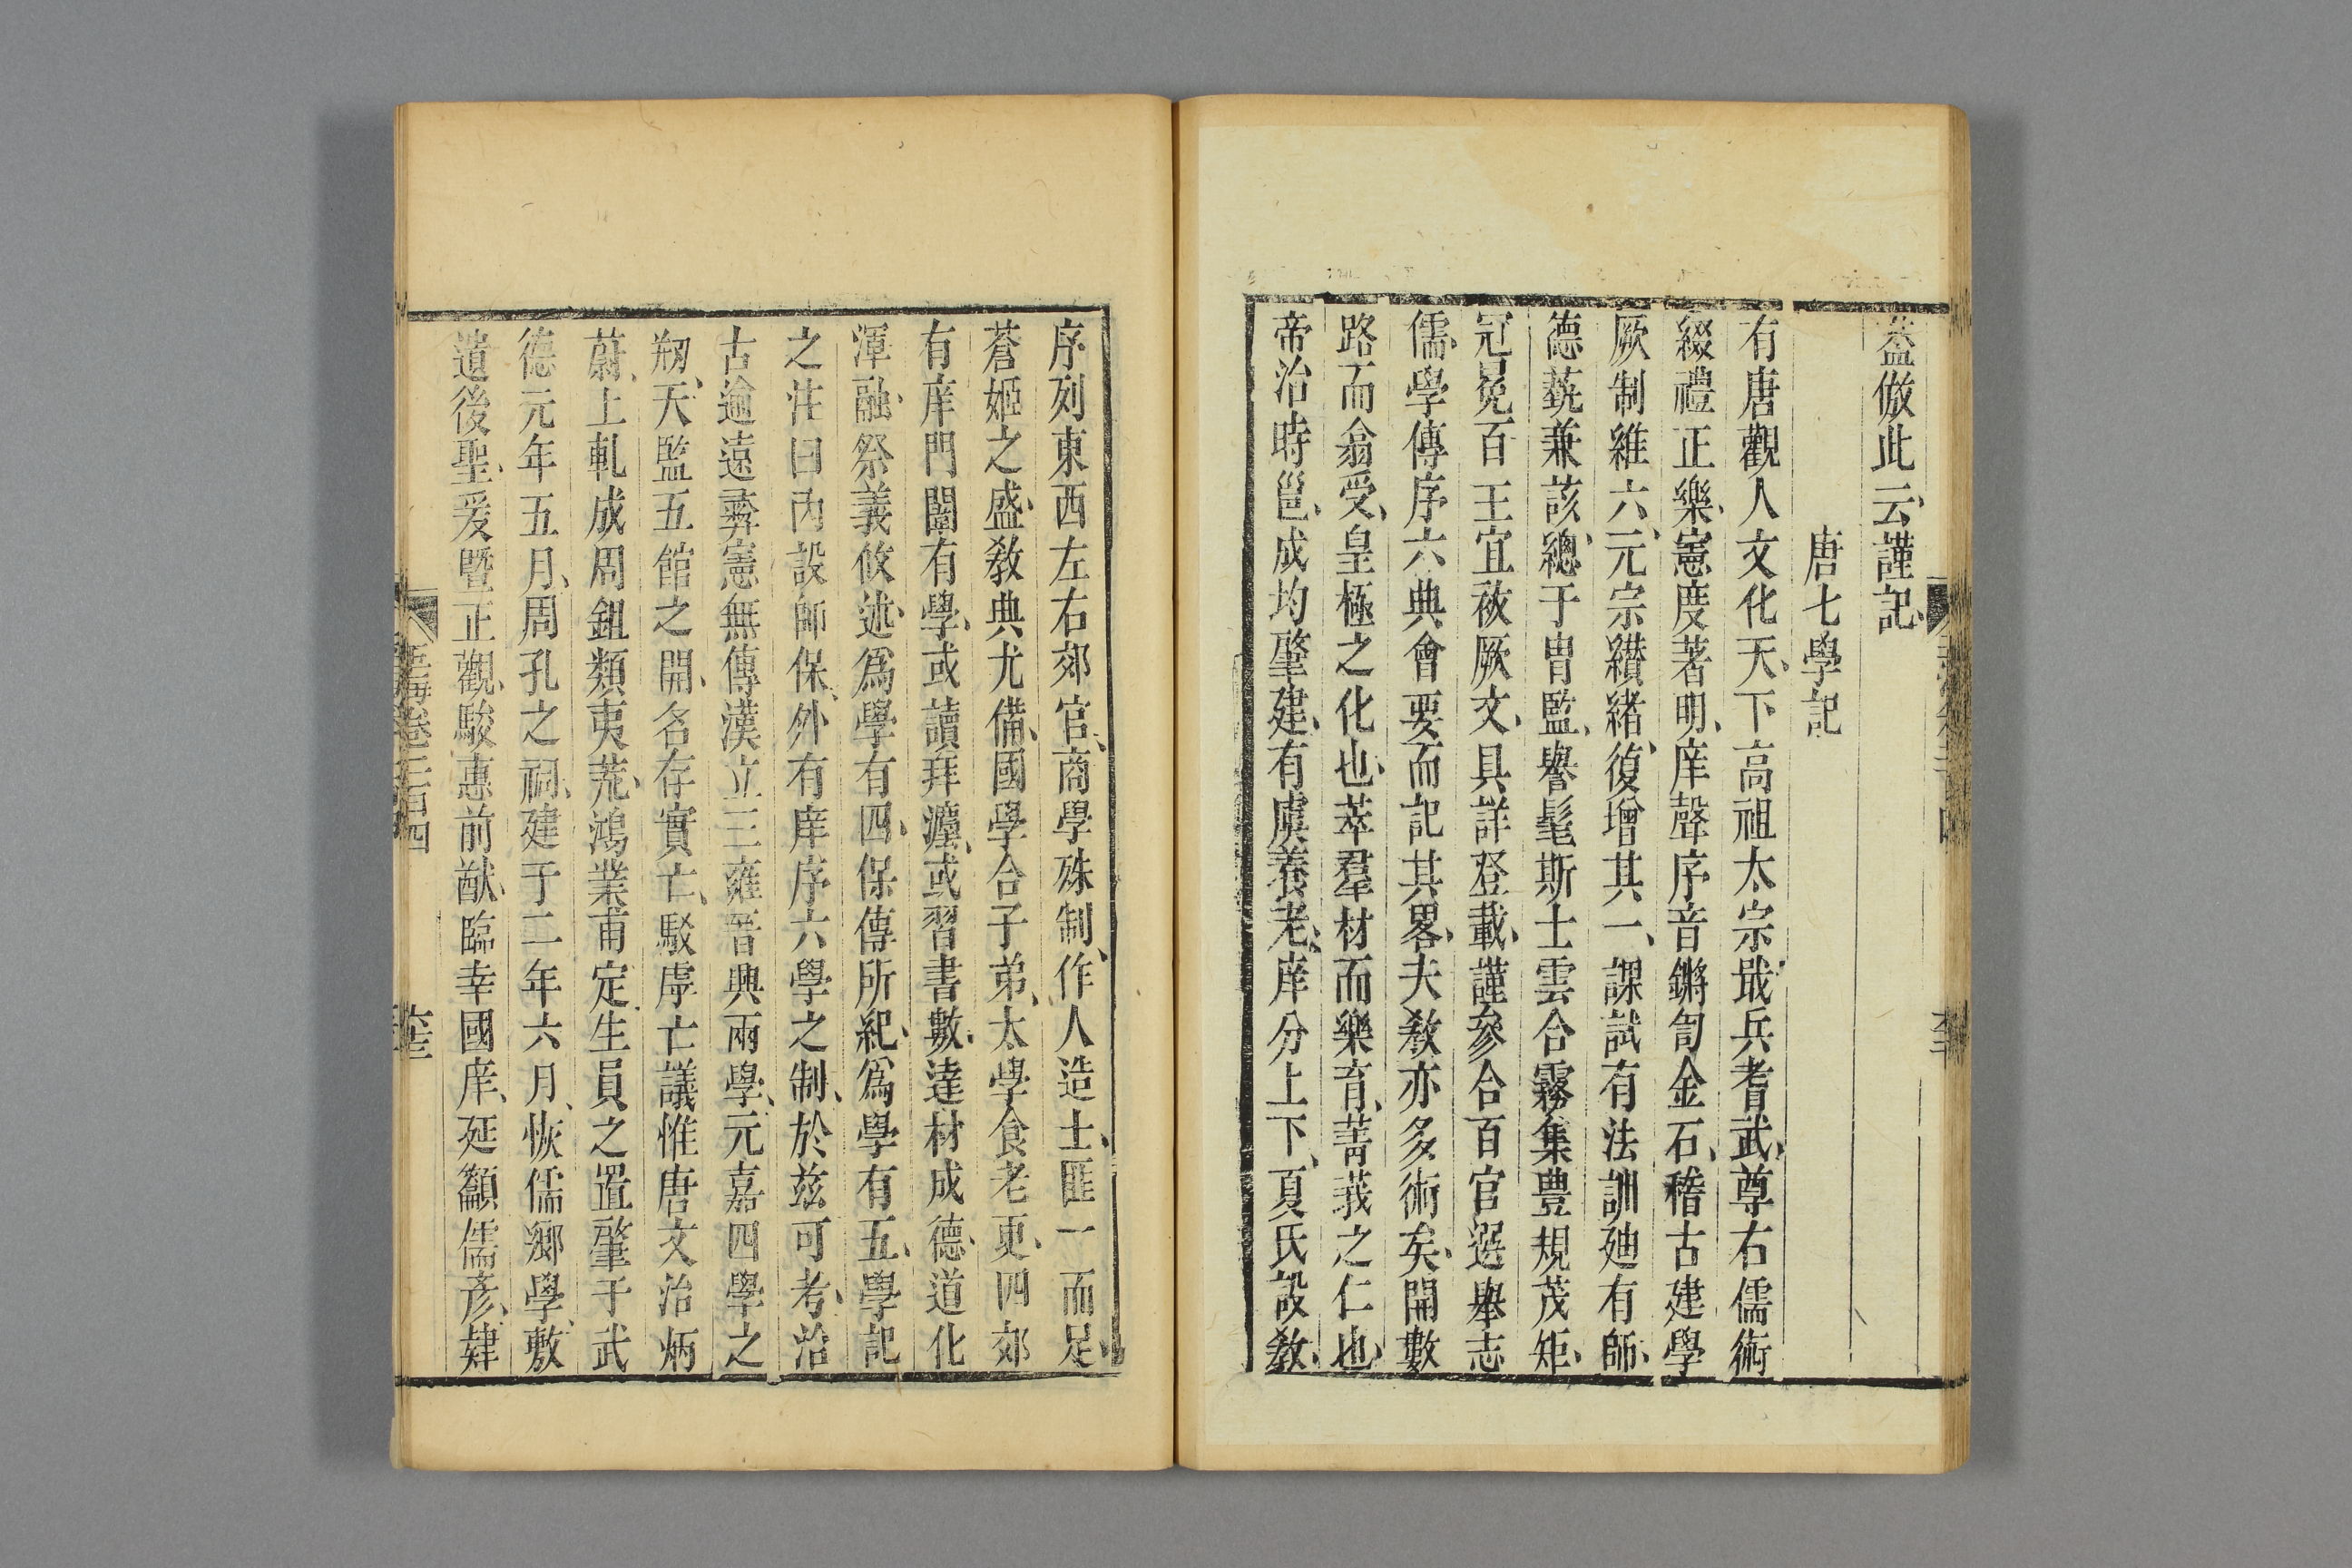 葢倣此云謹記
唐七學記
有唐觀人文化天下高祖太宗戢兵耆武尊右儒術
綴禮正樂憲度著明庠聲序音鏘訇金石稽古建學
厥制維六元宗纘緒復增其一課試有法訓廸有師
德蓺兼該總于胄監譽髦斯士雲合霧集豊規茂矩
冠冕百王宜祓厥文具詳登載謹參合百官選舉志
儒學傳序六典會要而記其畧夫敎亦多術矣開數
路而翕受皇極之化也萃羣材而樂育菁莪之仁也
帝治時邕成均肇建有虞養老庠分上下夏氏設敎
序列東西左右郊官商學殊制作人造士匪一而足
蒼姬之盛敎典尤備國學合子弟太學食老更四郊
有庠門闈有學或讀拜灋或習書數達材成德道化
渾融祭義攸述爲學有四保傳所紀爲學有五學記
之注曰內設師保外有庠序六學之制於茲可考洽
古逾遠彛憲無傳漢立三雍晉興兩學元嘉四學之
剏天監五館之開名存實亡駁虖亡議惟唐文治炳
蔚上軋成周鉏類夷荒鴻業甫定生員之置肇于武
德元年五月周孔之祠建于二年六月恢儒鄉學敷
遺後聖爰曁正觀駿惠前猷臨幸國庠延籲儒彥肄
玉海卷二百四